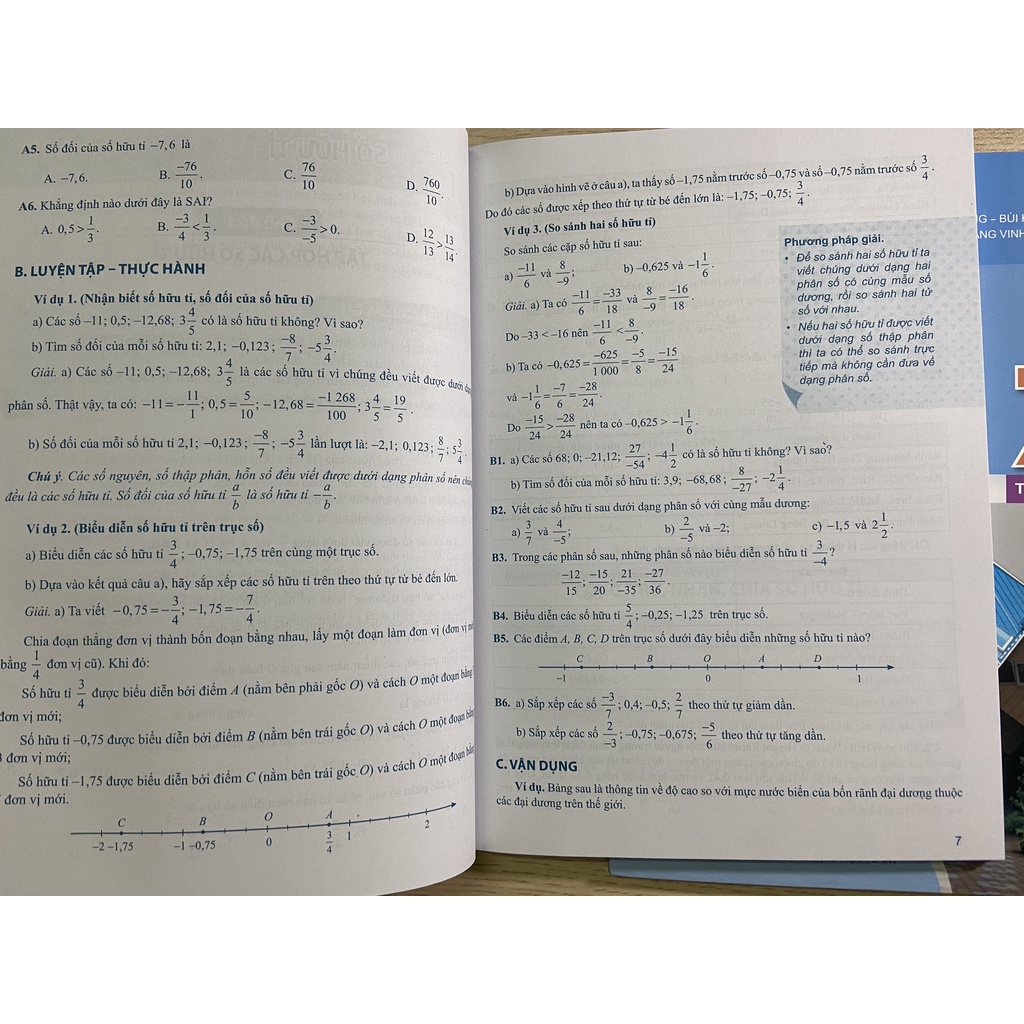 A5. Số đối của số hữu tỉ −7,6 là
A. −7,6.    B. −76/10.    C. 76/10    D. 760/10.
A6. Khẳng định nào dưới đây là SAI?
A. 0,5 > 1/3.    B. −3/4 < 1/3.    C. −3/−5 > 0.    D. 12/13 > 13/14.
B. LUYỆN TẬP – THỰC HÀNH
Ví dụ 1. (Nhận biết số hữu tỉ, số đối của số hữu tỉ)
a) Các số −11; 0,5; −12,68; 3 4/5 có là số hữu tỉ không? Vì sao?
b) Tìm số đối của mỗi số hữu tỉ: 2,1; −0,123; −8/7; −5 3/4.
Giải. a) Các số −11; 0,5; −12,68; 3 4/5 là các số hữu tỉ vì chúng đều viết được dưới dạng
phân số. Thật vậy, ta có: −11 = −11/1; 0,5 = 5/10; −12,68 = −1 268/100; 3 4/5 = 19/5.
b) Số đối của mỗi số hữu tỉ 2,1; −0,123; −8/7; −5 3/4 lần lượt là: −2,1; 0,123; 8/7; 5 3/4.
Chú ý. Các số nguyên, số thập phân, hỗn số đều viết được dưới dạng phân số nên
đều là các số hữu tỉ. Số đối của số hữu tỉ a/b là số hữu tỉ −a/b.
Ví dụ 2. (Biểu diễn số hữu tỉ trên trục số)
a) Biểu diễn các số hữu tỉ 3/4; −0,75; −1,75 trên cùng một trục số.
b) Dựa vào kết quả câu a), hãy sắp xếp các số hữu tỉ trên theo thứ tự từ bé đến lớn.
Giải. a) Ta viết −0,75 = −3/4; −1,75 = −7/4.
Chia đoạn thẳng đơn vị thành bốn đoạn bằng nhau, lấy một đoạn làm đơn vị (đơn vị
bằng 1/4 đơn vị cũ). Khi đó:
Số hữu tỉ 3/4 được biểu diễn bởi điểm A (nằm bên phải gốc O) và cách O một đoạn bằng
đơn vị mới;
Số hữu tỉ −0,75 được biểu diễn bởi điểm B (nằm bên trái gốc O) và cách O một đoạn bằng
đơn vị mới;
Số hữu tỉ −1,75 được biểu diễn bởi điểm C (nằm bên trái gốc O) và cách O một đoạn bằng
đơn vị mới.
C B O A
−2 −1,75 −1 −0,75 0 3/4 1 2
b) Dựa vào hình vẽ ở câu a), ta thấy số −1,75 nằm trước số −0,75 và số −0,75 nằm trước số 3/4.
Do đó các số được xếp theo thứ tự từ bé đến lớn là: −1,75; −0,75; 3/4.
Ví dụ 3. (So sánh hai số hữu tỉ)
So sánh các cặp số hữu tỉ sau:
a) −11/6 và 8/−9;    b) −0,625 và −1 1/6.
Giải. a) Ta có −11/6 = −33/18 và 8/−9 = −16/18.
Do −33 < −16 nên −11/6 < 8/−9.
b) Ta có −0,625 = −625/1 000 = −5/8 = −15/24
và −1 1/6 = −7/6 = −28/24.
Do −15/24 > −28/24 nên ta có −0,625 > −1 1/6.
Phương pháp giải.
• Để so sánh hai số hữu tỉ ta
viết chúng dưới dạng hai
phân số có cùng mẫu số
dương, rồi so sánh hai tử
số với nhau.
• Nếu hai số hữu tỉ được viết
dưới dạng số thập phân
thì ta có thể so sánh trực
tiếp mà không cần đưa về
dạng phân số.
B1. a) Các số 68; 0; −21,12; 27/−54; −4 1/2 có là số hữu tỉ không? Vì sao?
b) Tìm số đối của mỗi số hữu tỉ: 3,9; −68,68; 8/−27; −2 1/4.
B2. Viết các số hữu tỉ sau dưới dạng phân số với cùng mẫu dương:
a) 3/7 và 4/−5;    b) 2/−5 và −2;    c) −1,5 và 2 1/2.
B3. Trong các phân số sau, những phân số nào biểu diễn số hữu tỉ 3/−4?
−12/15; −15/20; 21/−35; −27/36.
B4. Biểu diễn các số hữu tỉ 5/4; −0,25; −1,25 trên trục số.
B5. Các điểm A, B, C, D trên trục số dưới đây biểu diễn những số hữu tỉ nào?
C B O A D
−1 0 1
B6. a) Sắp xếp các số −3/7; 0,4; −0,5; 2/7 theo thứ tự giảm dần.
b) Sắp xếp các số 2/−3; −0,75; −0,675; −5/6 theo thứ tự tăng dần.
C. VẬN DỤNG
Ví dụ. Bảng sau là thông tin về độ cao so với mực nước biển của bốn rãnh đại dương thuộc
các đại dương trên thế giới.
7
– BÙI
VINH
T